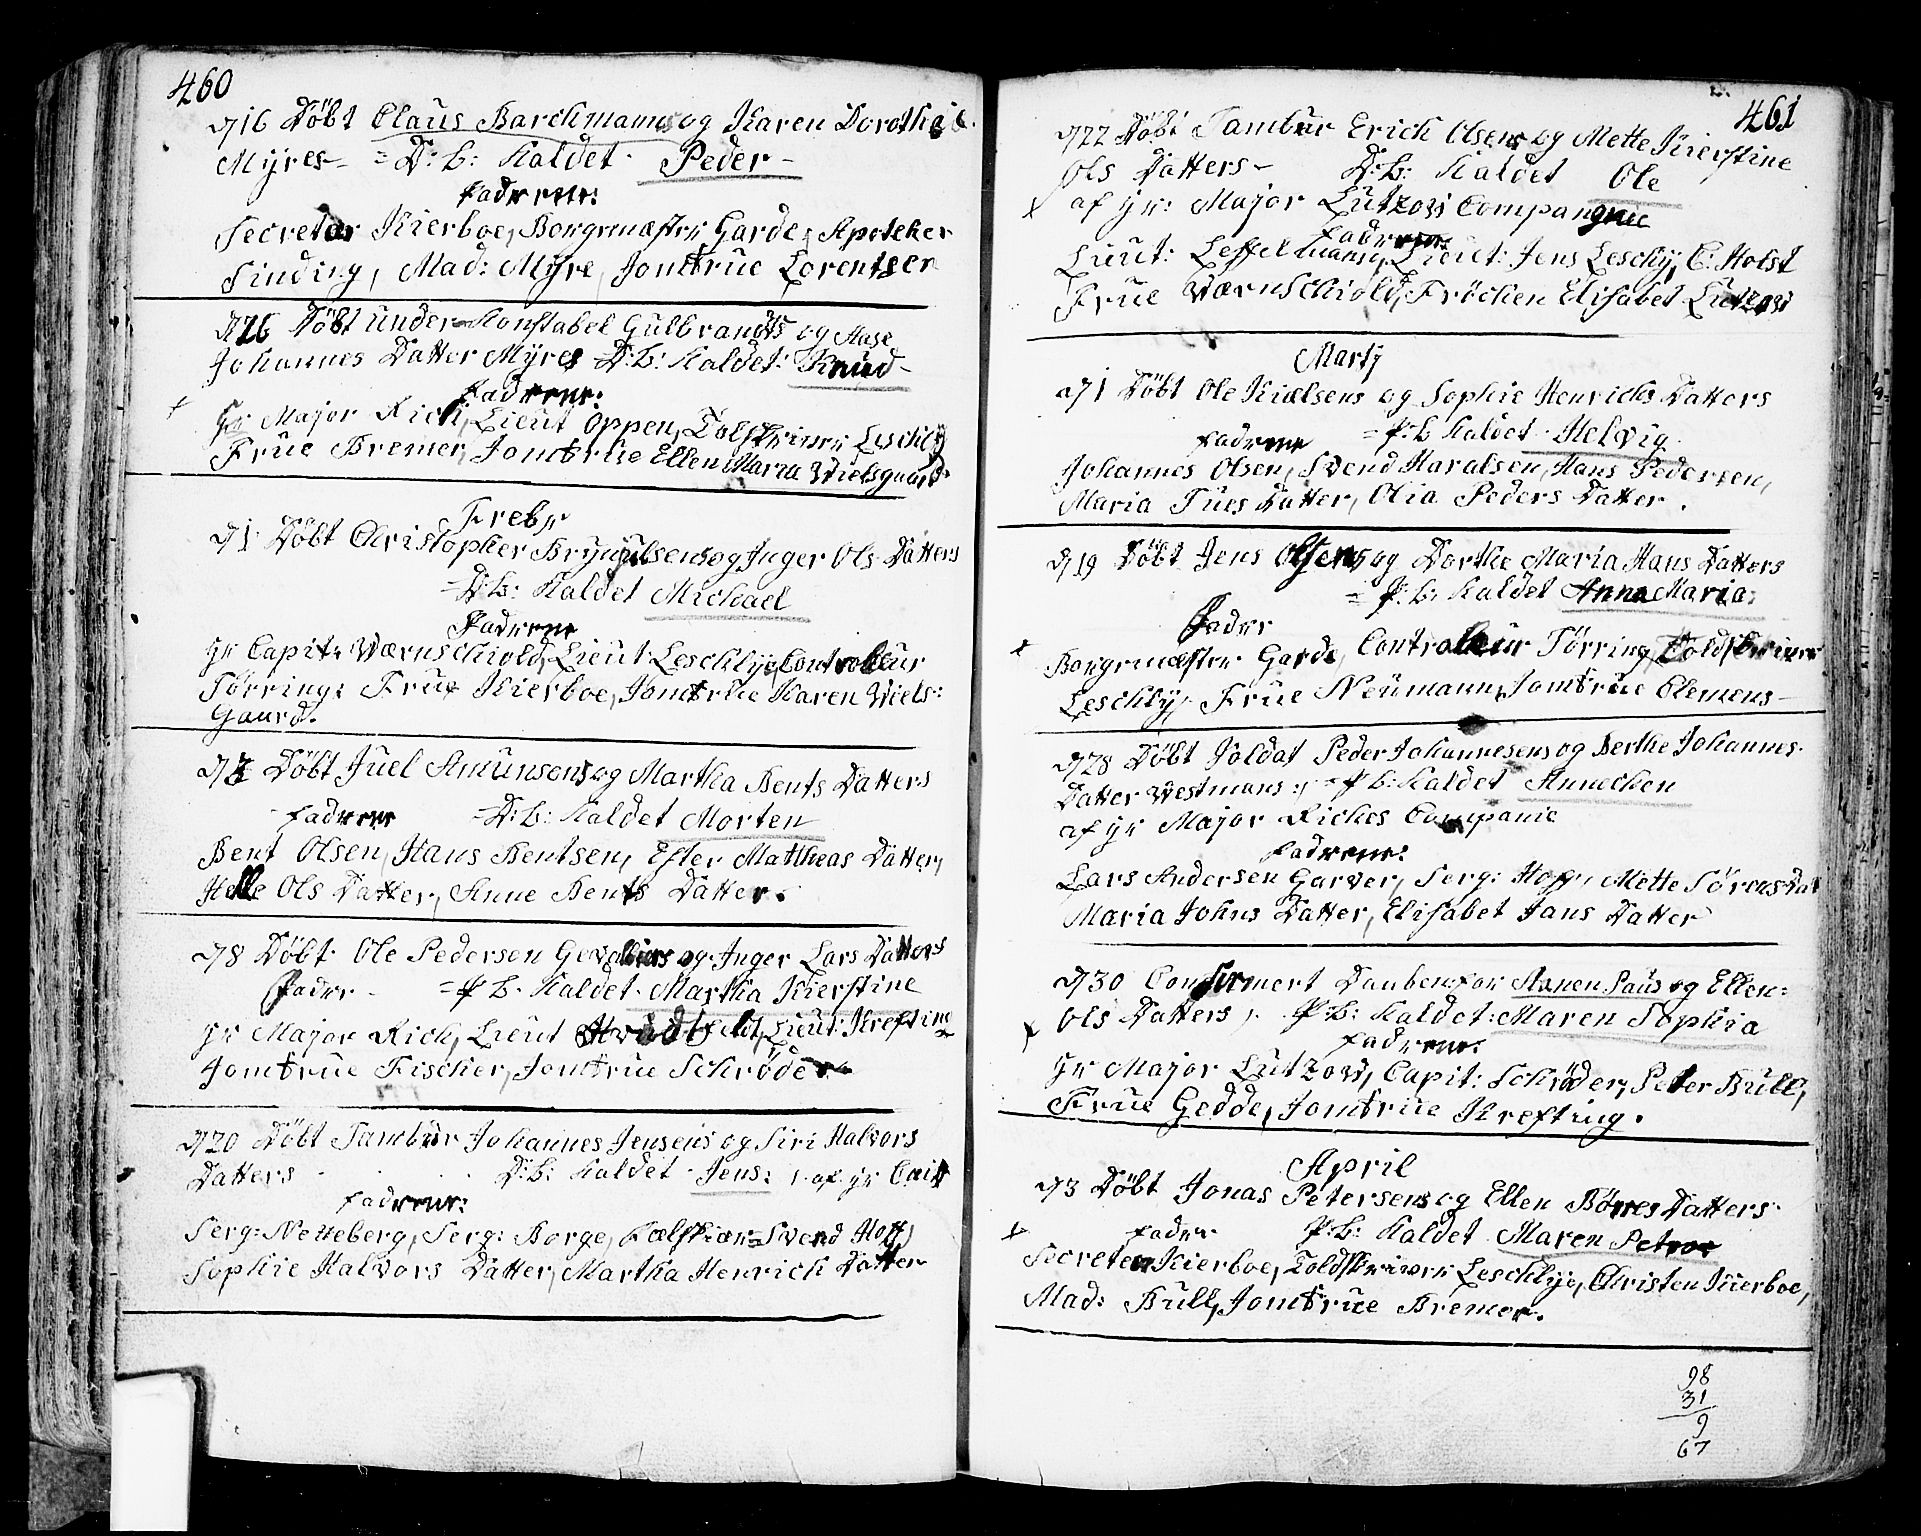 460
d 16 Döbt Claus Barchmanns og Karen Dorothea
Myres = D: b: Kaldet Peder
Faddrene:
Secreter Kierboe, Borgemæster Garde, Apoteker
Sinding, Mad: Myre, Jomfrue Lorentsen
d 26 Döbt under Konstabel Gulbrandts og Aase
Johannes Datter Myres D: b: Kaldet: Knud
Faddrene:
Hr Major Rich, Lieut Oppen, Tolskriver Leschly
Frue Bremer, Jomfrue Ellen Maria Wielsgaard
Frebr
d 1 Döbt Christopher Brynulsens og Inger Ols Datters
D: b: Kaldet Michael
Faddrene
Hr Capit: Wærnschiold, Lieut: Leschlye, Controlleur
Törring: Frue Kierboe, Jomfrue Karen Wiels:
Gaard.
d Döbt Juel Amunsens og Martha Bents Datters
Faddrene = D: b: Kaldet Morten
Bent Olsen, Hans Bentsen, Ester Mattheas Datter,
Helle Ols Datter, Anne Bents Datter.
d 8 Döbt Ole Pedersen Gevalliers og Inger Lars Datters
Fadre = P b. Kaldet Martha Kierstine
Hr Major Rich, Lieut Lieut: Krefting
Jomfrue Fischer, Jomfrue Schröder
d 20 Döbt Tambur Johannes Jensens og Siri Halvors
Datters D: b: Kaldet Jens: af Hr
Faddrene:
Serg: Netteberg, Serg: Borge, Fælskiær Svend Hoff
Sophie Halvors Datter, Martha Henrich Datter
461
d 22 Döbt Tambur Erich Olsens og Mette Kierstine
Ols Datters D: b: Kaldet Ole
af Hr: Major Lutzows Compangnie
Faddrene
Lieut: Leffelmann, Lieut: Jens Leschly, C: Holst
Frue Wærnschiold, Fröcken Elisabet Lutzow
Martj
d 1 Döbt Ole Kielsens og Sophie Henrichs Datters
Faddrene = P: b Kaldet Helvig
Johannes Olsen, Svend Haralsen, Hans Pedersen,
Maria Tues Datter, Olia Peders Datter.
d 19 Döbt Jens Olsens og Dorthe Maria Hans Datters
= P: b: Kaldet Anna Maria:
Fadre
Borgemæster Garde, Controlleur Törring, Toldskriver
Leschly, Frue Neumann, Jomfrue Clemens
d 28 Döbt Soldat Peder Johannesens og Berthe Johannes
Datter Westmans:, = P b: Kaldet Annechen
af Hr Major Riches Companie
Faddrene:
Lars Andersen Garver, Serg: Hoff, Mette Sörens Dat
Maria Johns Datter, Elisabet Jans Datter
d 30 Confirmert Daaben for Asmen Paus og Ellen:
Ols Datters, P: b: Kaldet: Maren Sophia
Faddrene:
Hr Major Lutzow, Capit: Schröder, Peter Bull,
Frue Gedde, Jomfrue Krefting.
April
d 3 Döbt Jonas Petersens og Ellen Börres Datters
Fadre P: b: Kaldet Maren Petroe
Secreter Kierboe, Toldskriver Leschlye, Christen Kierboe,
Mad: Bull, Jomfrue Bremer.
98
31
9
67